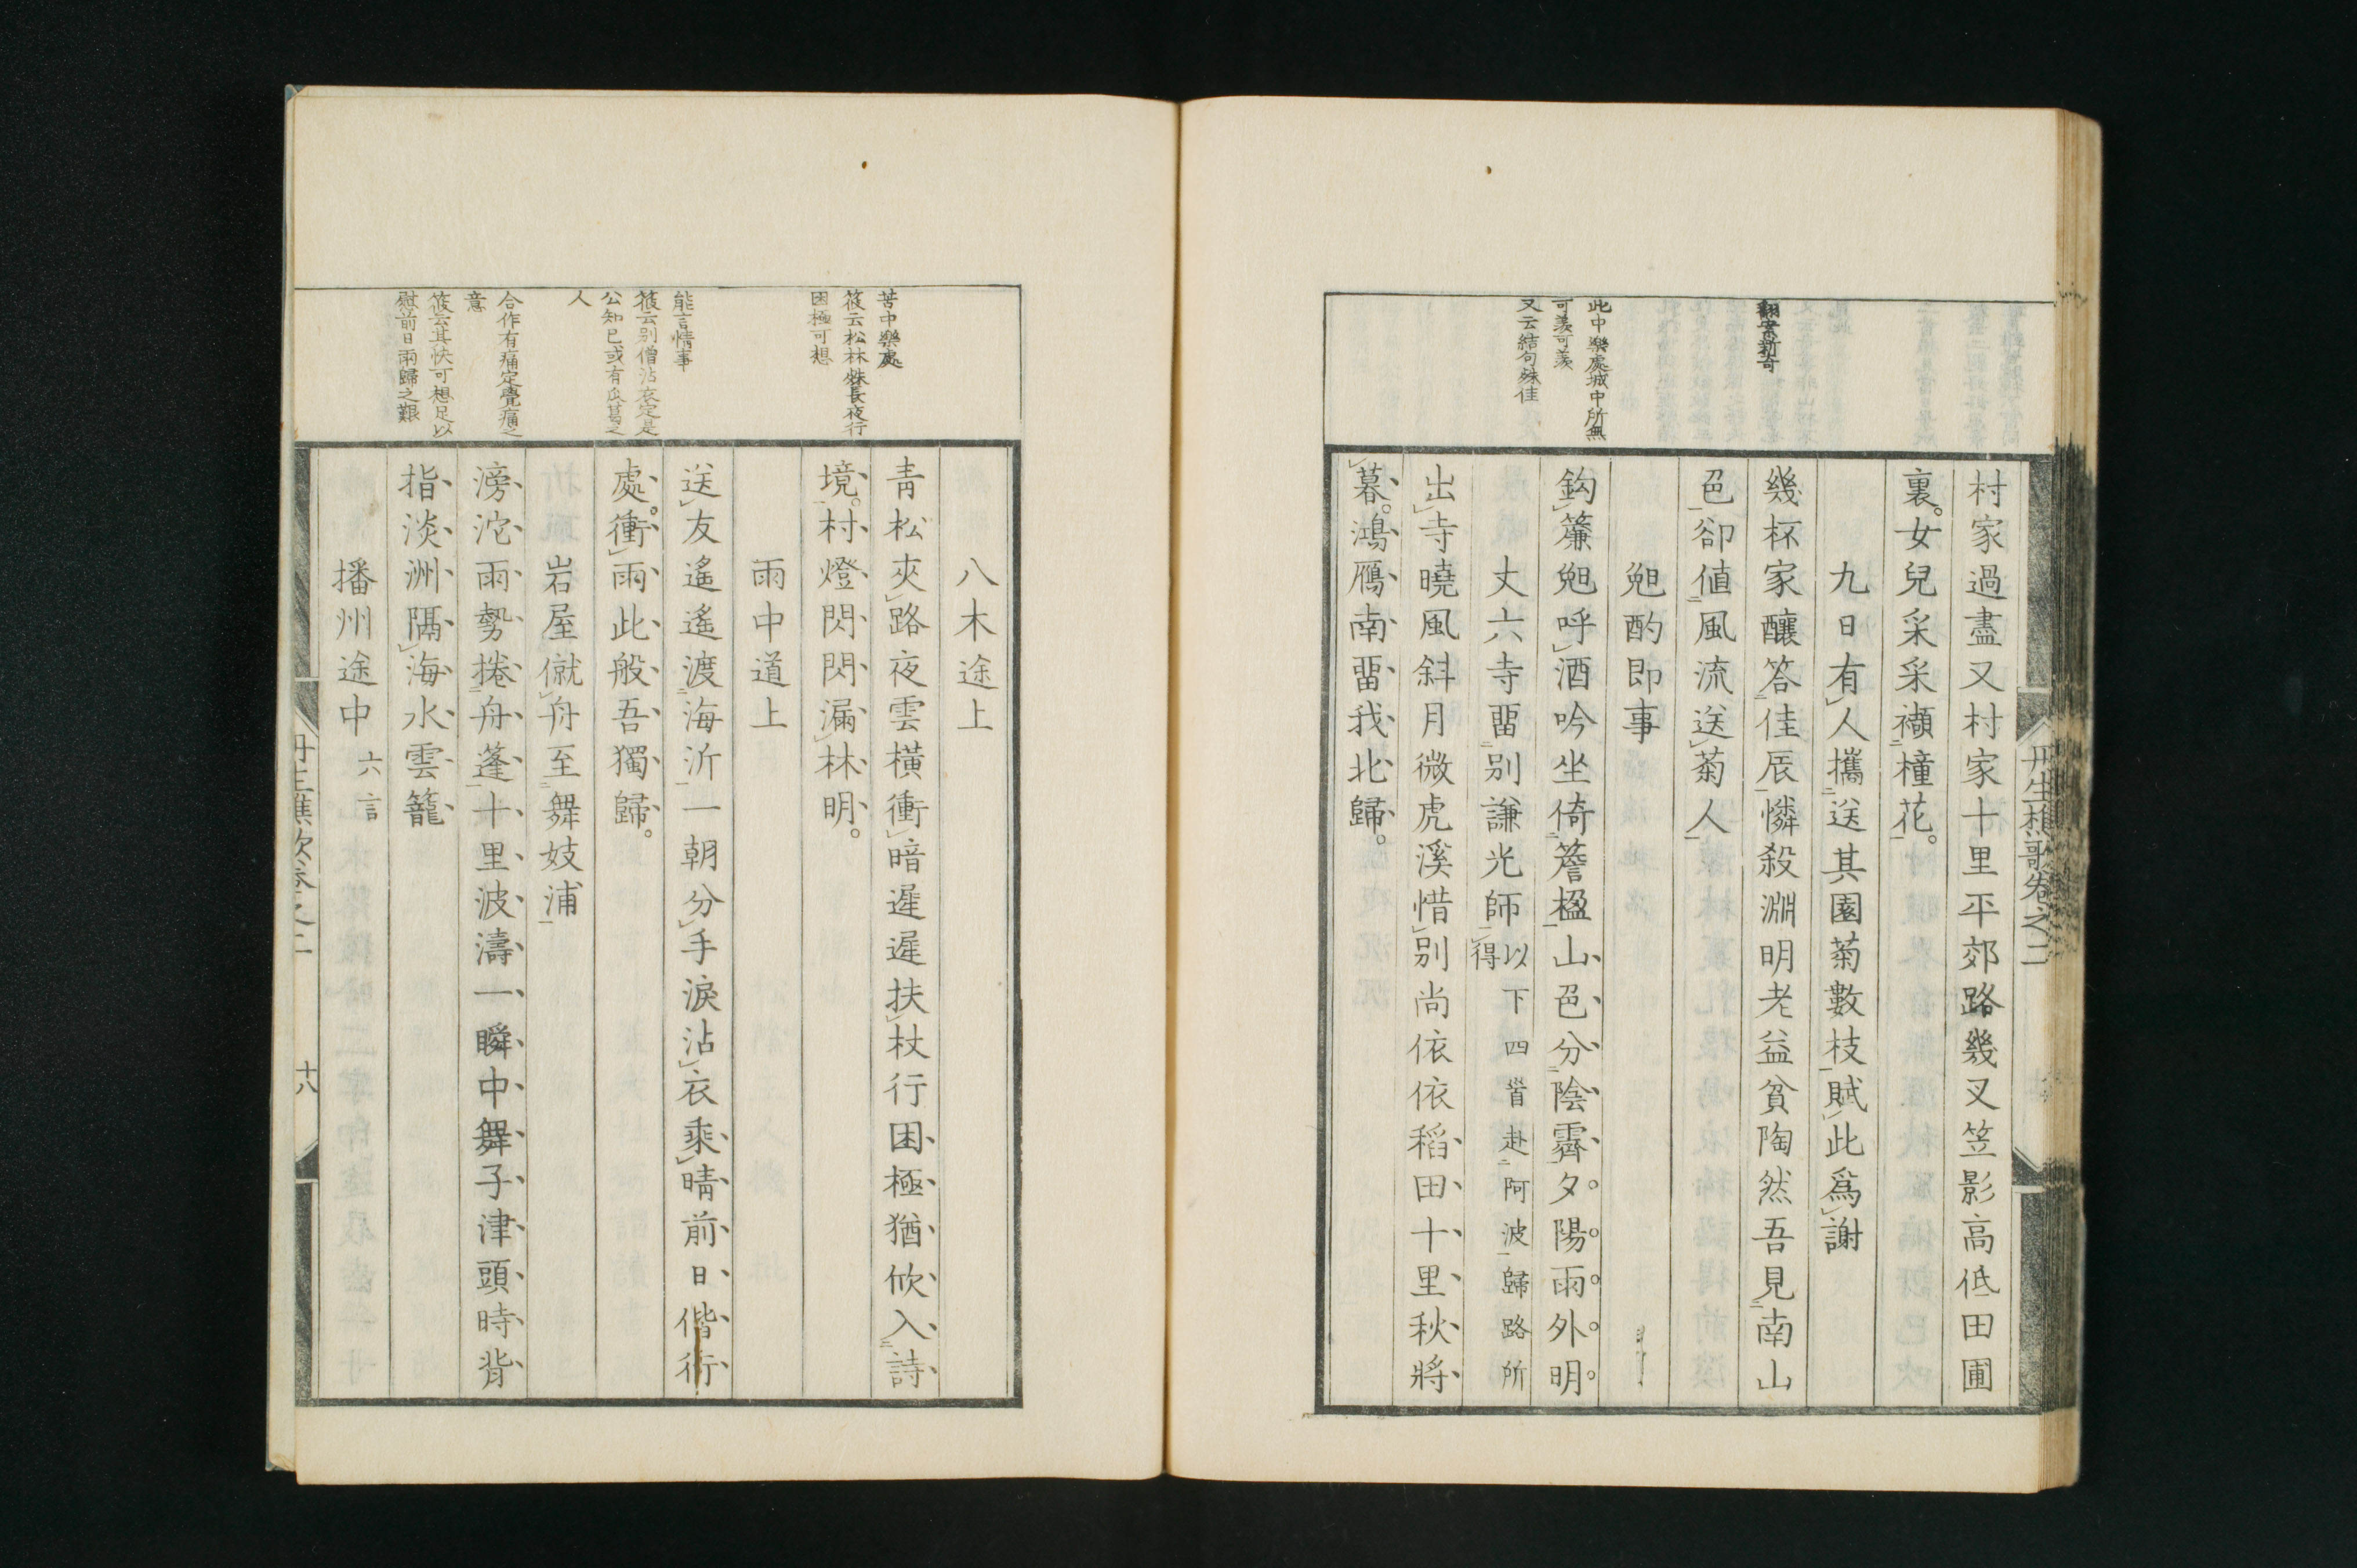 丹生樵歌卷之二
村家過盡又村家十里平郊路幾叉笠影高低田圃
裏。女兒采采襭橦花。
九日有人攜送其園菊數枝賦此爲謝
幾杯家釀答佳辰憐殺淵明老益貧陶然吾見南山
色卻値風流送菊人
䟴酌即事
鈎簾䟴呼酒吟坐倚簷楹山色分陰霽夕陽雨外明
丈六寺畱別謙光師以下四首赴阿波歸路所
得
出寺曉風斜月微虎溪惜別尚依依稻田十里秋將
暮。鴻鴈南畱我北歸。
翻案新奇
此中樂處城中所無
可羨可羨
又云結句殊佳
八木途上
青松夾路夜雲橫衝暗遲遲扶杖行困極猶欣入詩
境。村燈閃閃漏林明。
雨中道上
送友遙遙渡海沂一朝分手淚沾衣乘晴前日偕行
處。衝雨此般吾獨歸。
岩屋僦舟至舞妓浦
滂沱雨勢捲舟蓬十里波濤一瞬中舞子津頭時背
指淡洲隔海水雲籠
播州途中 六言
苦中樂處
筱云松林殊長夜行
困極可想
能言情事
筱云別僧沾衣定是
公知已或有瓜葛之
人
合作有痛定覺痛之
意
筱云其快可想足以
慰前日雨歸之艱
丹生樵歌卷之二
十八